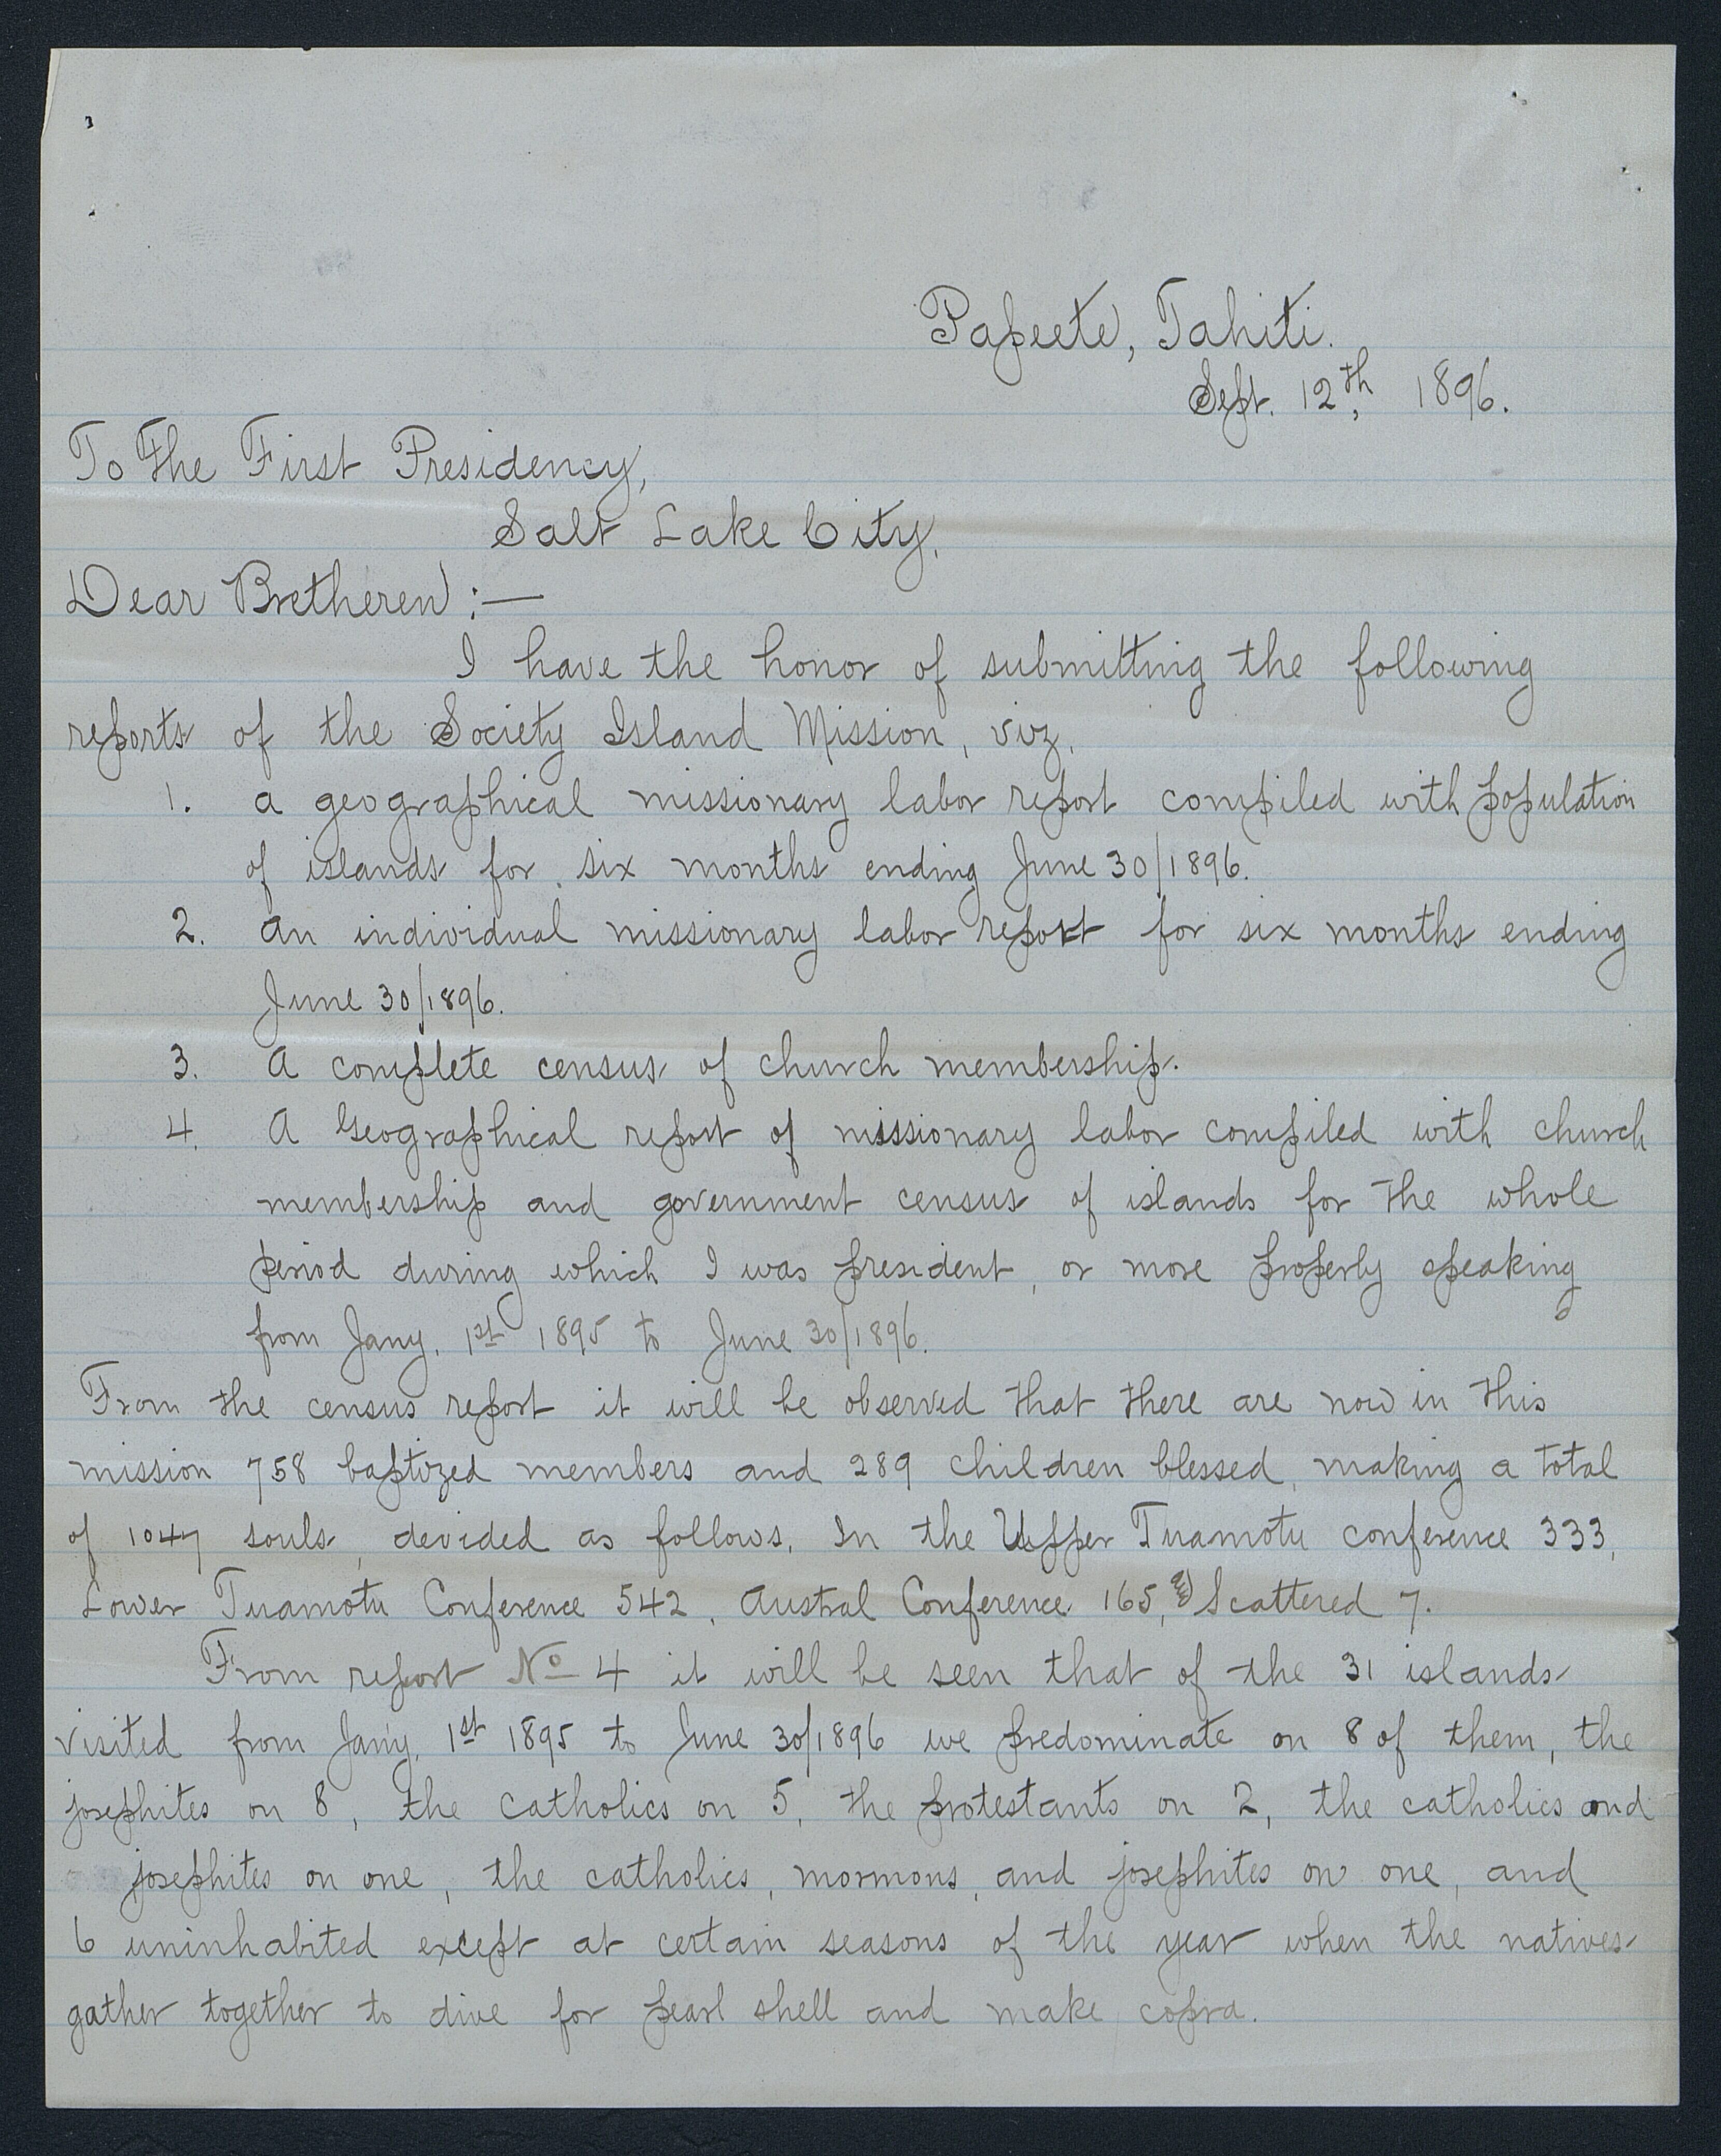 Papeete, Tahiti.
Sept. 12th, 1896.
To The First Presidency,
Salt Lake City.
Dear Bretheren :—
I have the honor of submitting the following
reports of the Society Island Mission, viz.
1. a geographical missionary labor report compiled with population
of islands for six months ending June 30/1896.
2. An individual missionary labor report for six months ending
June 30/1896.
3. A complete census of church membership.
4. A Geographical report of missionary labor compiled with church
membership and government census of islands for the whole
period during which I was president, or more properly speaking
from Jany. 1st 1895 to June 30/1896.
From the census report it will be observed that there are now in this
mission 758 baptized members and 289 children blessed, making a total
of 1047 souls, devided as follows. In the Upper Tuamotu conference 333,
Lower Tuamotu Conference 542, Austral Conference 165, and Scattered 7.
From report No 4 it will be seen that of the 31 islands
visited from Jany. 1st 1895 to June 30/1896 we predominate on 8 of them, the
josephites on 8, the catholics on 5, the protestants on 2, the catholics and
josephites on one, the catholics, mormons, and josephites on one, and
6 uninhabited except at certain seasons of the year when the natives
gather together to dive for pearl shell and make copra.